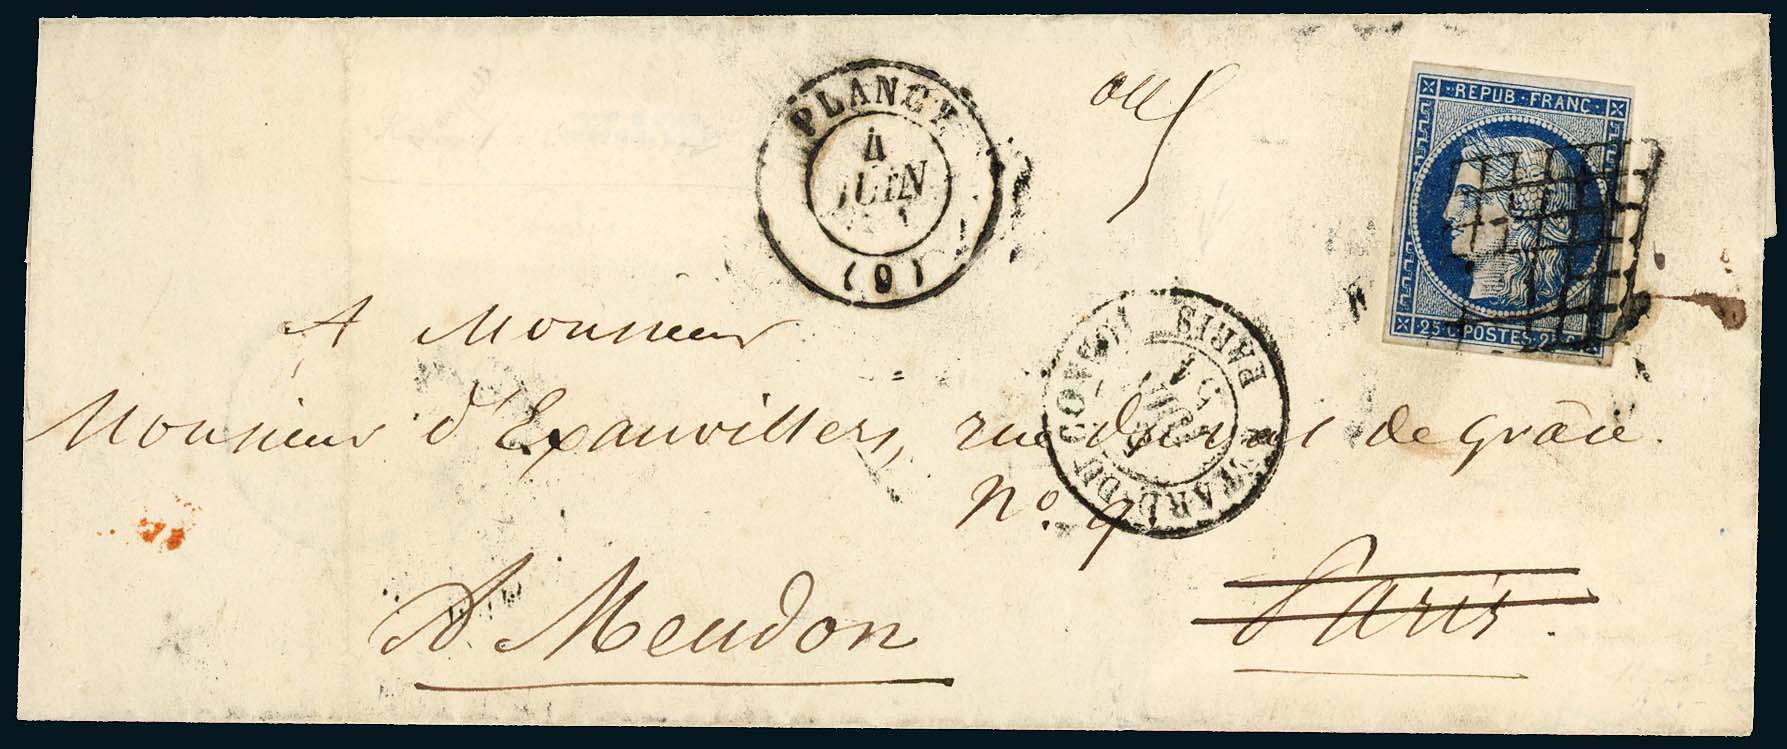 PLANCY
4
JUIN
(9)
REPUB·FRANC·
25·C·POSTES·25·C
PARIS
51
A Monsieur
Monsieur d'Exauvillers, rue du val de grâce.
No. 9
Paris.
A Meudon